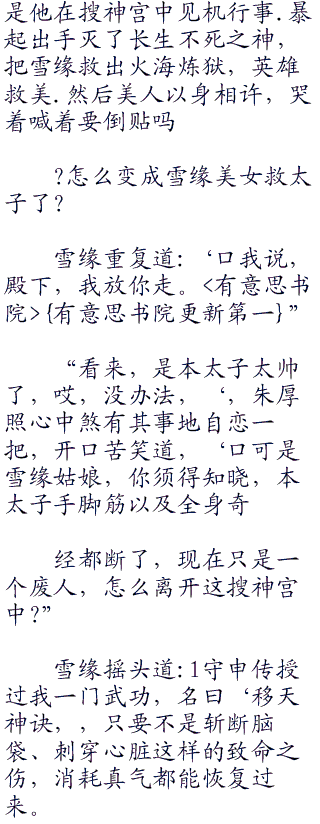 是他在搜神宫中见机行事.暴
起出手灭了长生不死之神，
把雪缘救出火海炼狱，英雄
救美.然后美人以身相许，哭
着喊着要倒贴吗
?怎么变成雪缘美女救太
子了?
雪缘重复道：‘口我说，
殿下，我放你走。<有意思书
院>{有意思书院更新第一}”
“看来，是本太子太帅
了，哎，没办法，‘，朱厚
照心中煞有其事地自恋一
把，开口苦笑道，‘口可是
雪缘姑娘，你须得知晓，本
太子手脚筋以及全身奇
经都断了，现在只是一
个废人，怎么离开这搜神宫
中?”
雪缘摇头道:1守申传授
过我一门武功，名曰‘移天
神诀，，只要不是斩断脑
袋、刺穿心脏这样的致命之
伤，消耗真气都能恢复过
来。